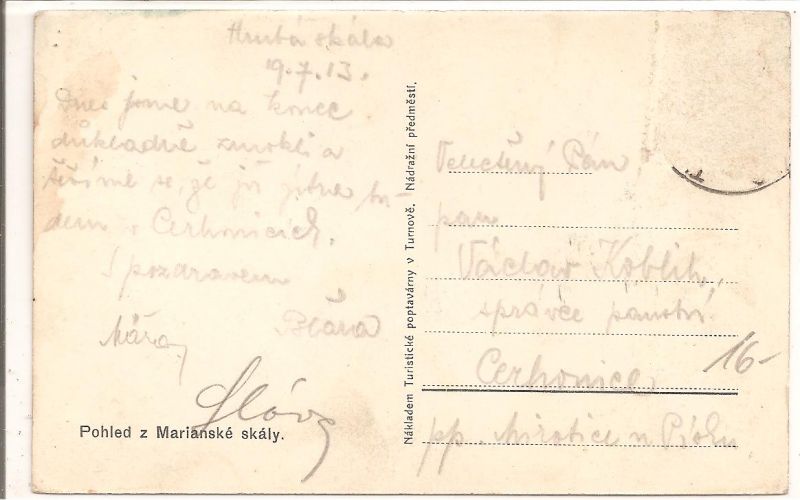 Hrubá skála
19.7.13.
Dnes jsme na konec
důkladně zmokli a
těšíme se, že již zítra bu-
dem v Cerhonicích.
S pozdravem
Máňa
Sláva
Pohled z Marianské skály.
Nákladem Turistické poptavárny v Turnově. Nádražní předměstí.
Velectěný Pán,
pan
Václav Koblih,
správce panství
Cerhonice
pp. Mirotice u Písku
16-